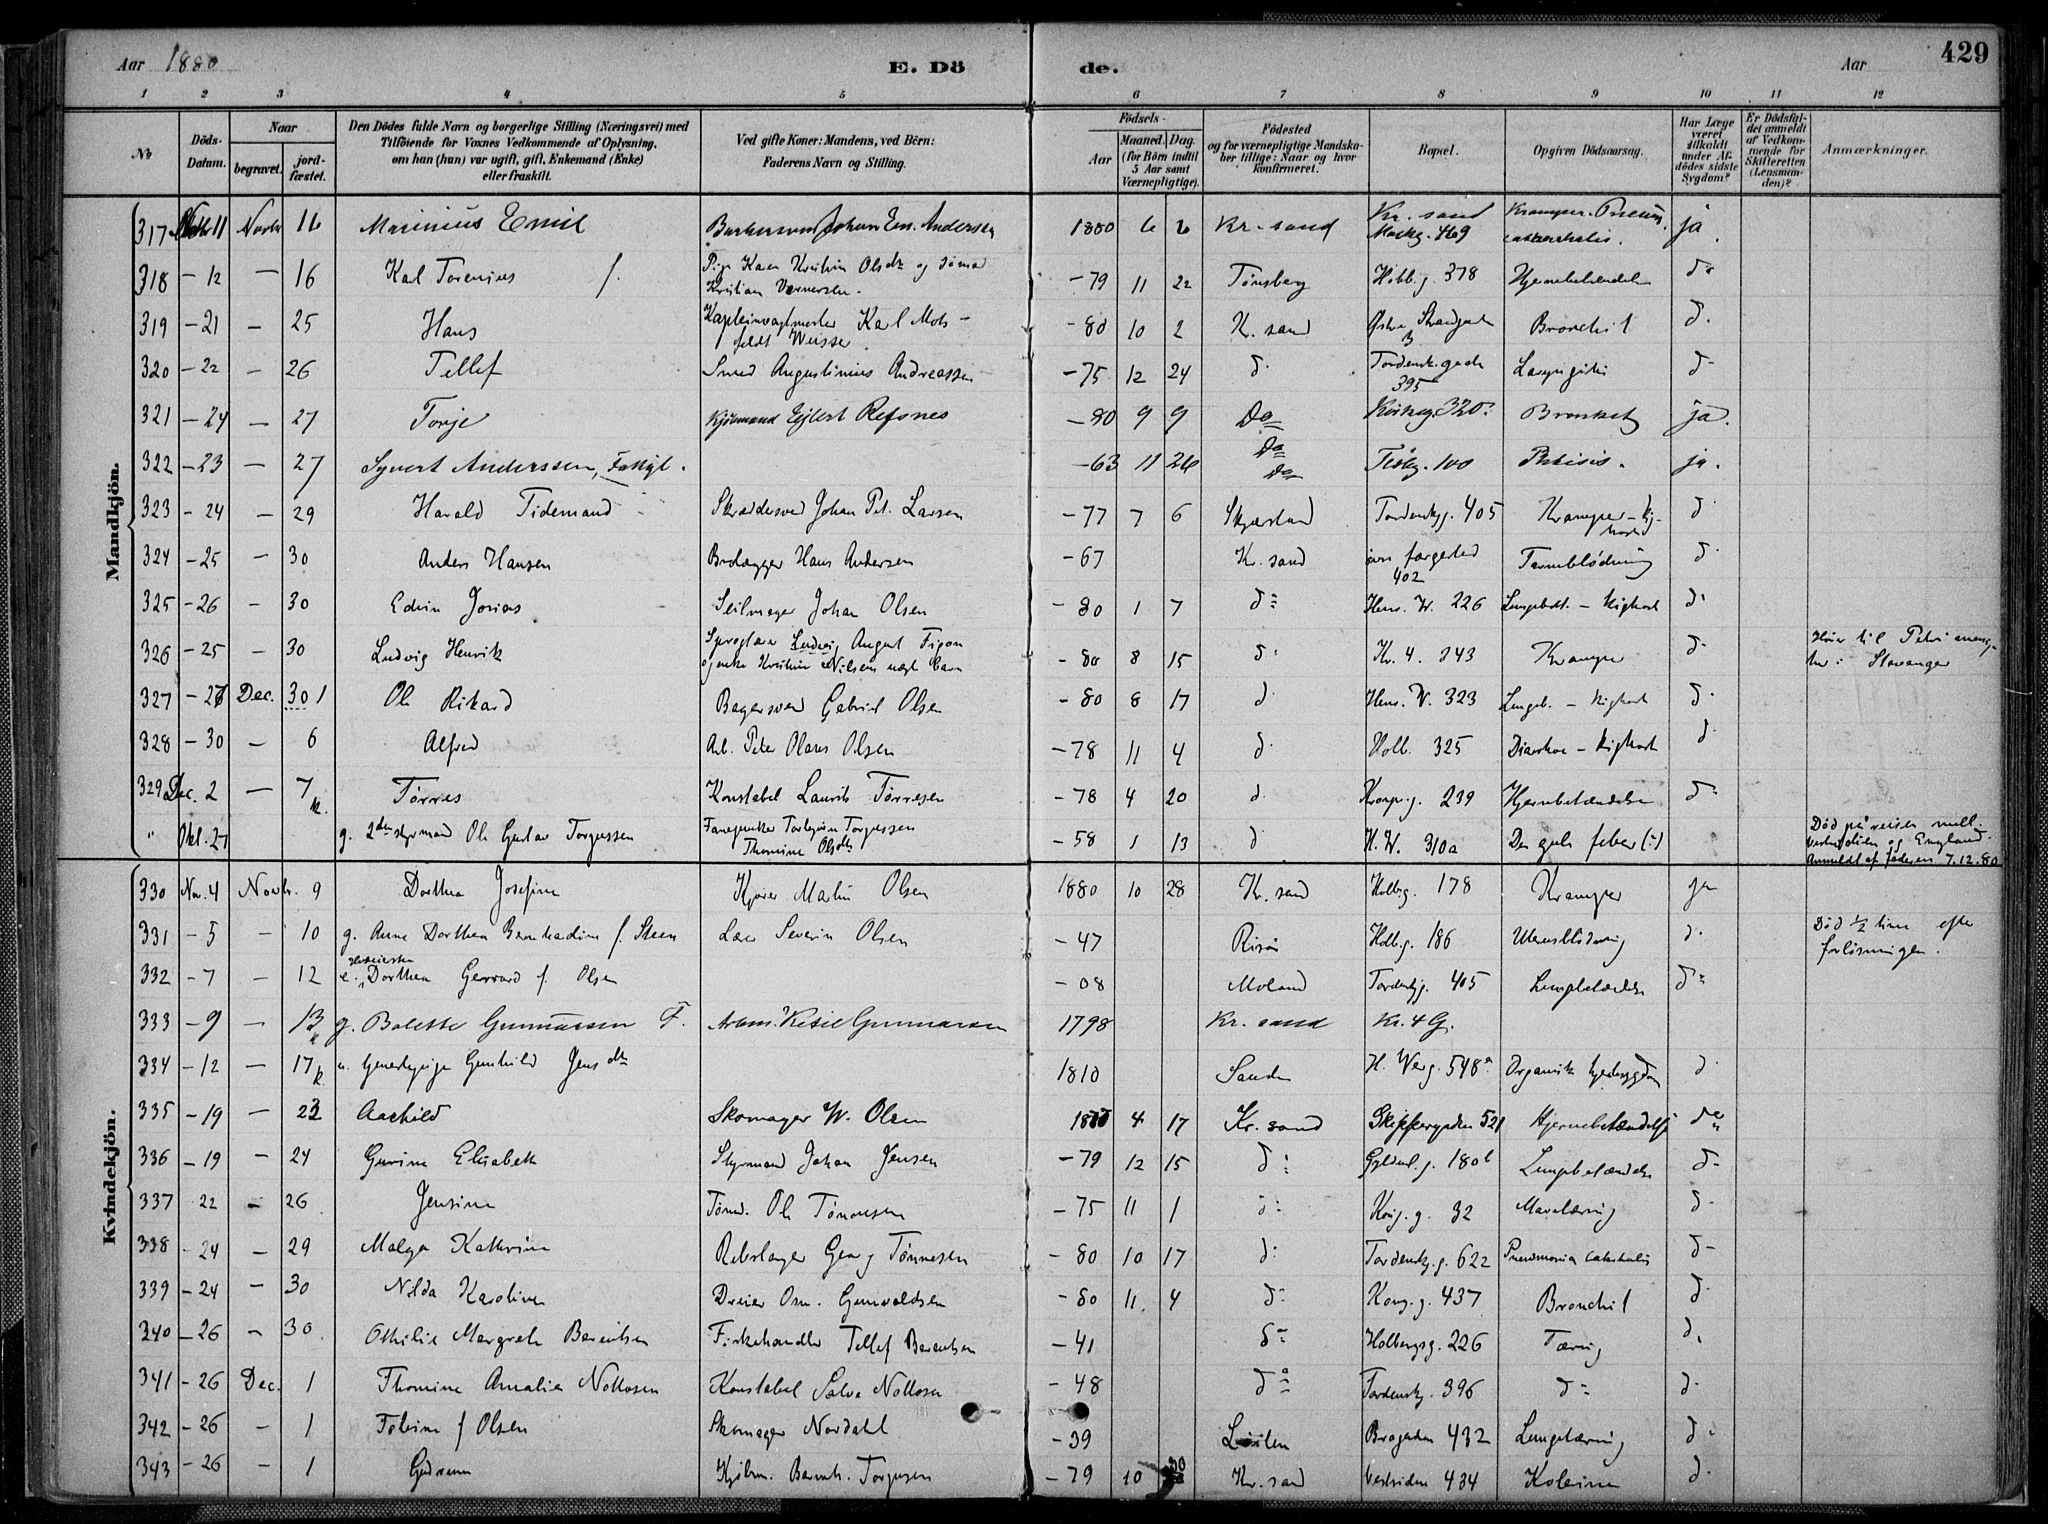 Aar 1880 E. Dö de. Aar 429
1 2 3 4 5 6 7 8 9 10 11 12
No
Döds-Datum.
Naar
begravet.
jord-fæstet.
Den Dödes fulde Navn og borgerlige Stilling (Næringsvei) med
Tilföiende for Voxnes Vedkommende af Oplysning,
om han (hun) var ugift, gift, Enkemand (Enke)
eller fraskilt.
Ved gifte Koner: Mandens, ved Börn:
Faderens Navn og Stilling.
Födsels-
Aar
Maaned. Dag.
(for Börn indtil
5 Aar samt
Værnepligtige).
Födested
og for værnepligtige Mandska-
ber tillige: Naar og hvor
konfirmeret.
Bopæl.
Opgiven Dödsaarsag.
Har Læge
været
tilkaldt
under Af-
dödes sidste
Sygdom?
Er Dödsfal-
det anmeldt
af Vedkom-
mende for
Skifteretten
(Lensman-
den)?
Anmærkninger.
Mandkjön.
317 11 Novbr 16 Marinius Emil Johan Em. Andersen 1880 6 6 Kr. sand Kr. sand 469 ja
318 - 12 — 16 Karl Torenius f. Pige Karen Kristin Olsdtr og Kristian Vernersen. - 79 11 22 Tønsberg Holb.g. 378 Hjernebetændelse do
319 - 21 — 25 Hans Karl Mots-feldt - 80 10 2 K. sand Østre Strandgade 3 Bronchit d.
320 - 22 26 Tellef Smed Augustinius Andreassen - 75 12 24 d. Tordensk. gade 395 d
321 - 24 — 27 Torje Kjøbmand Ejlert Refsnes - 80 9 9 Do Kirkeg. 320 Bronket ja.
322 - 23 — 27 Syvert Anderssen, Fattigl. - 63 11 26 Do Do 100 Phtisis. ja.
323 - 24 — 29 Harald Tidemand Skræddersvend Johan Pet. Larsen - 77 7 6 Tordenskg. 405 Kramper - Kighoste d.
324 - 25 — 30 Anders Hansen Brolægger Hans Andersen - 67 K. sand 402 Tarmblødning d.
325 - 26 — 30 Edvin Josias Seilmager Johan Olsen - 80 1 7 d: Henr. W. 226 Lungebet. - Kighoste d.
326 - 25 — 30 Ludvig Henrik Sproglærer Ludvig August og enke Kristine Nilsens uægte Barn - 80 8 15 d: Kr. 4. 343 Kramper d. Hører til Petri menig-het i Stavanger
327 - 27 Dec. 30 1 Ole Rikard Bagersvend Gabriel Olsen - 80 8 17 d. Henr. W. 323 Lungeb. - Kighoste d.
328 - 30 — 6 Alfred Arb. Peter Olaus Olsen - 78 11 4 d. Holb. 325 Diarrhoe - Kighoste d.
329 Dec. 2 — 7 k. Tørres Konstabel Laurits Tørresen - 78 4 20 d. Krongs.g. 239 Hjernebetændelse d.
" Okt. 27 g. 2den styrmand Ole Gustav Torgussen Torbjørn Torgussen Thomine Olsdtr - 58 1 13 d. H. W. 310a Den gule feber (:) Død på reisen mell. Vestindien og England. Anmeldt af faderen 7.12.80
Kvindekjön.
330 Nov. 4 Novbr. 9 Dorthea Josefine Kjører Martin Olsen 1880 10 28 Kr. sand Holbg. 178 Kramper ja
331 - 5 — 10 g. Anne Dorthea Bernhardine f. Steen Lærer Severin Olsen - 47 Risør Holb.g. 186 Uterusblødning d. Død ½ time efter forløsningen.
332 - 7 — 12 e. Dorthea Gerrard f. Olsen - 08 Moland Tordenskg. 405 Lungebetændelse d:
333 - 9 — 13 k g. Bolette Gunnarsen F. Arbm. Ketil Gunnarsen 1798 Kr. sand Kr. 4 G.
334 - 12 — 17 k. u. Gunhild Jensdtr 1810 Sande H. Werg. 548a Organisk hjertesygdom d.
335 - 19 — 23 Aashild Skomager W. Olsen 1880 4 17 Kr. sand Skippergaden 521 Hjernebetændelse do
336 - 19 — 24 Gurine Elisabeth Styrmand Johan Jensen - 79 12 15 d: Gyldenl.g. 180b Lungebetændelse d.
337 22 — 26 Jensine Tømd. Ole Tønnesen - 75 11 1 d: Kong.g. 32 Mavetæring d.
338 - 24 — 29 Malga Kathrine Rebslager Georg Tønnesen - 80 10 17 d: Tordensk.g. 622 Pneumonia catarrhalis d.
339 - 24 — 30 Nilda Karoline Dreier Osm. Gunvaldsen - 80 11. 4 d: Kong.g. 437 Bronchit d.
340 - 26 — 30 Othilie Margrete Berentsen Fiskehandler Tellef Berentsen - 41 d: Holbergsg. 226 Tæring d.
341 - 26 Dec. 1 Thomine Amalie Nottosen Konstabel Salve Nottosen - 48 do Tordenskg. 396 d: d.
342 - 26 — 1 Tobine f Olsen Skomager Nordahl - 39 Brogaden 432 Lungetæring d.
343 - 26 — 1 Gudrun Kjøbm. Bernh. Torgusen - 79 10 30 Kr. sand Vestsiden 434 Kolerine d.